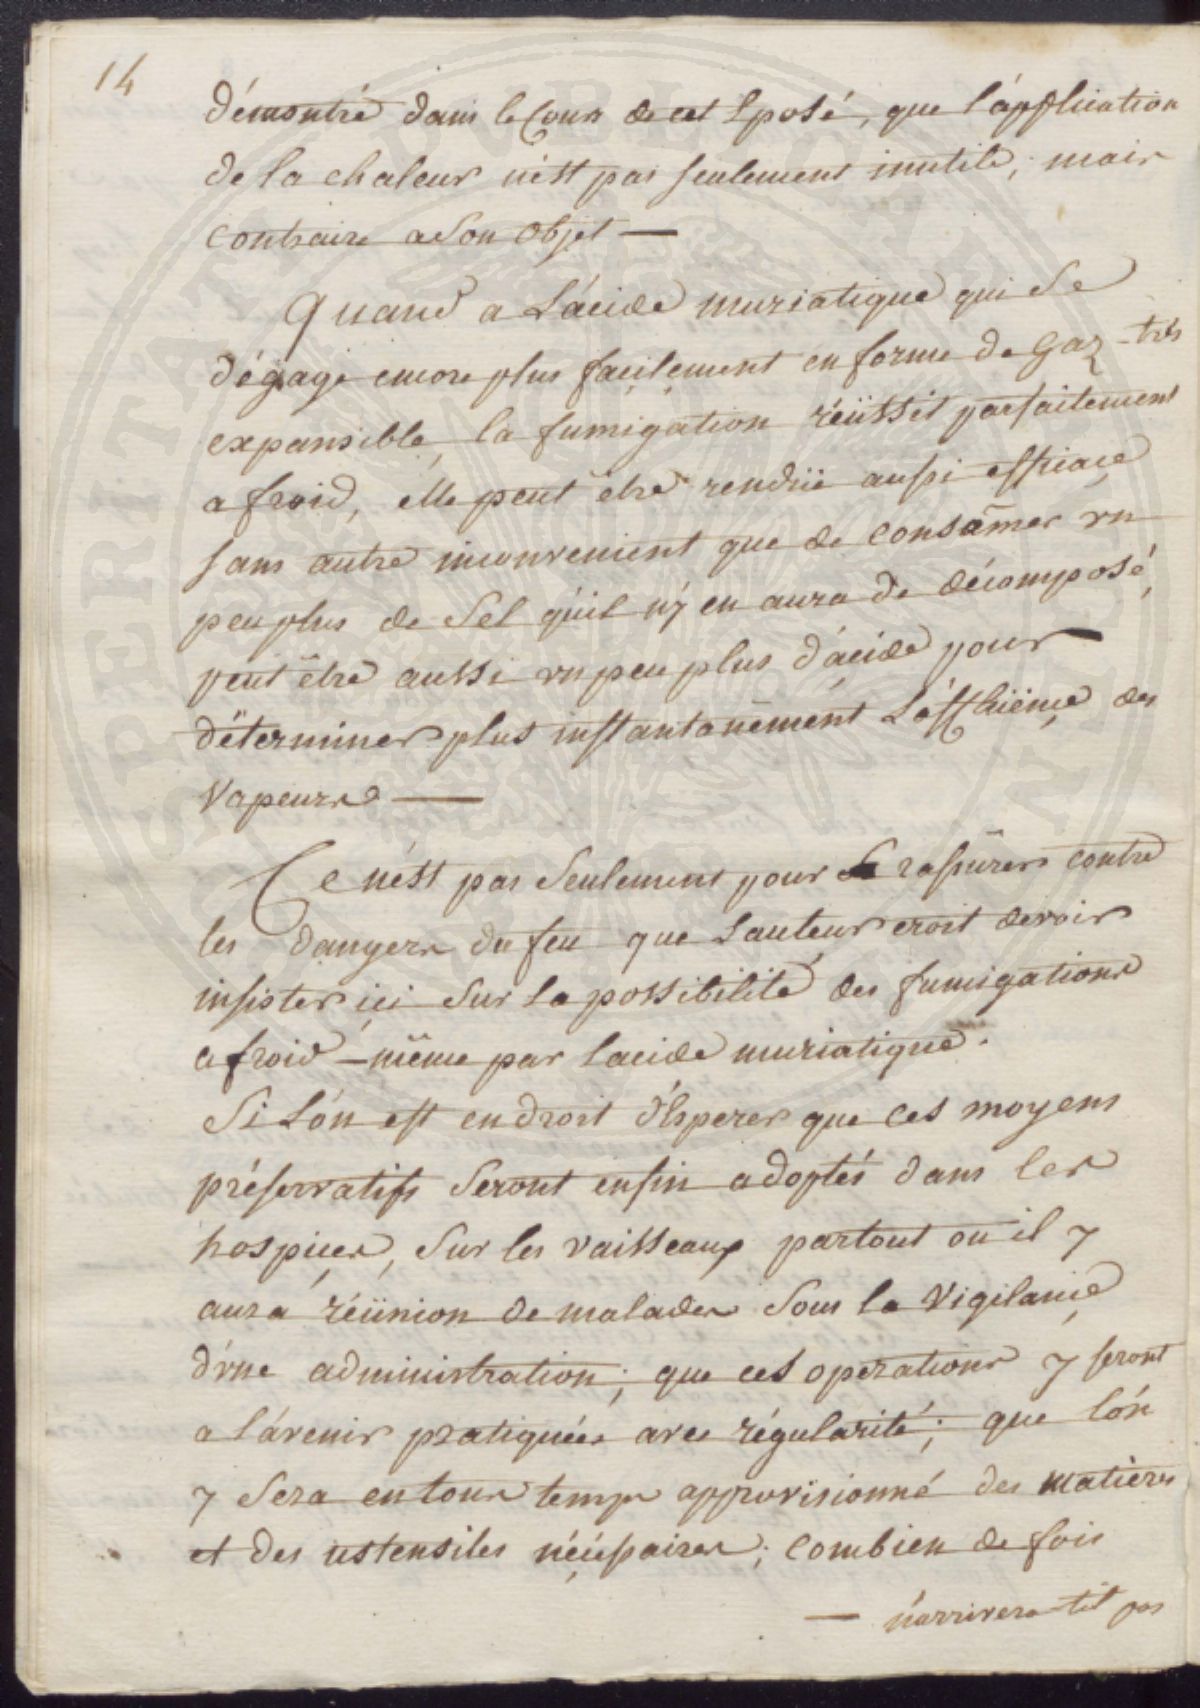 14
démontré dans le Cour de cet Éposé, que l'application
de la chaleur n'est pas seulement inutile, mais
contraire a Son Objet —
Quand a L'acide muriatique qui Se
dégage encore plus facilement en forme de Gaz-très
expansible, la fumigation réüssit parfaitement
a froid, elle peut être rendüe aussi efficace
sans autre inconvenient que de consâmer vn
peu plus de Sel qu'il n'y en aura de décomposé,
peut être aussi vn peu plus d'acide pour
déterminer plus instantanément L'
des
Vapeurs —
Ce n'ést pas Seulement pour Se rassûrer contre
les dangers du feu que L'auteur croit devoir
insister ici Sur La possibilité des fumigations
a froid — même par lacide muriatique.
Si L'on est en droit d'Esperer que ces moyens
préservatifs Seront enfin adoptés dans les
hospices, Sur les vaisseaux partout ou il y
aura réünion de malades Sous la Vigilance
d'vne administration; que ces operations y seront
a l'avenir pratiquées avec régularité; que l'on
y Sera en tous temps approvisionné des matières
et des ustensiles nécéssaires; Combien de fois
— n'arrivera-til pas